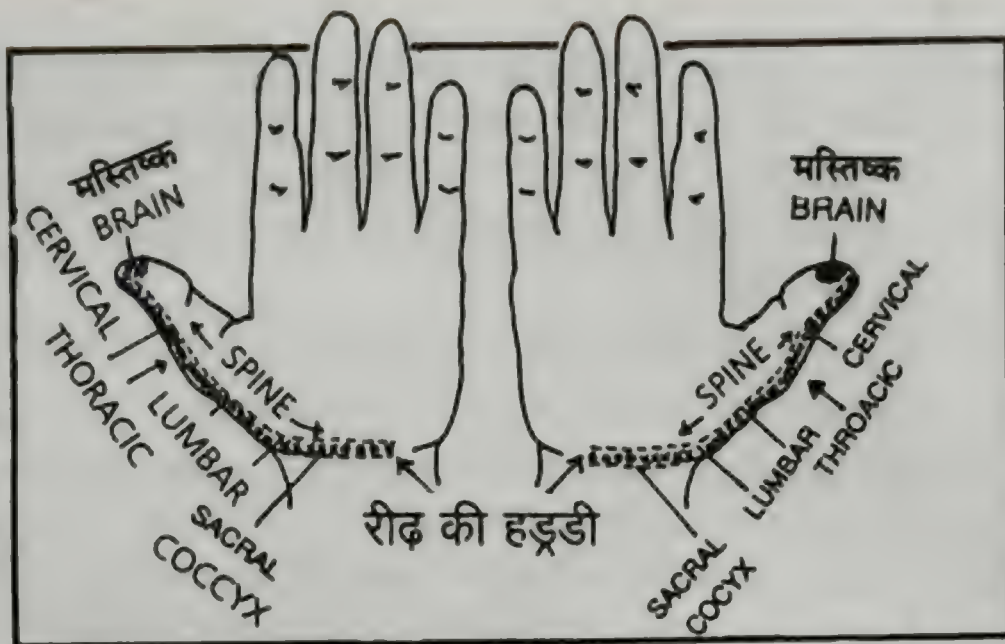 मस्तिष्क
BRAIN
CERVICAL
THORACIC
LUMBAR
SPINE
SACRAL
COCCYX
रीढ़ की हड्डी
मस्तिष्क
BRAIN
CERVICAL
THROACIC
SPINE
LUMBAR
SACRAL
COCYX